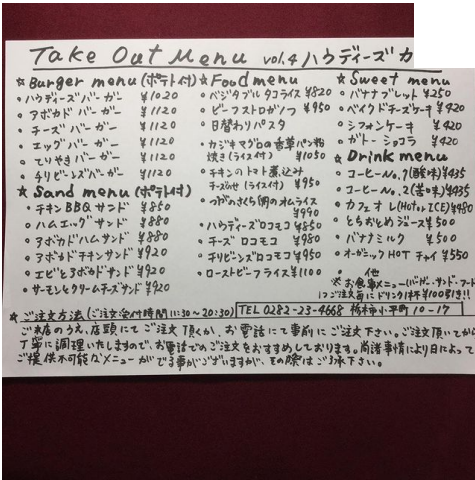 Take Out Menu vol.4 ハウディーズカ
☆Burger menu(ポテト付)
・ハウディーズバーガー ¥1020
・アボカドバーガー ¥1120
・チーズバーガー ¥1120
・エッグバーガー ¥1120
・てりやきバーガー ¥1120
・チリビーンズバーガー ¥1120
☆Sand menu(ポテト付)
・チキンBBQサンド ¥850
・ハムエッグサンド ¥880
・アボカドハムサンド ¥880
・アボカドチキンサンド ¥920
・エビとアボカドサンド ¥920
・サーモンとクリームチーズサンド ¥920
☆Food menu
・ベジタブルタコライス ¥820
・ビーフストロガノフ ¥950
・日替わりパスタ
・カジキマグロの香草パン粉
焼き(ライス付) ¥1050
・チキンのトマト煮込み
チーズのせ(ライス付) ¥950
・つがのさくら卵のオムライス
¥990
・ハウディーズロコモコ ¥850
・チーズロコモコ ¥980
・チリビーンズロコモコ ¥950
・ローストビーフライス ¥1100
☆Sweet menu
・バナナブレット ¥250
・ベイクドチーズケーキ ¥420
・シフォンケーキ ¥420
・ガトーショコラ ¥420
☆Drink menu
・コーヒーNo.1(酸味) ¥435
・コーヒーNo.2(苦味) ¥435
・カフェオレ(Hot or ICE) ¥480
・とちおとめジュース ¥500
・バナナミルク ¥500
・オーガニックHOTチャイ ¥550
・他
※お食事メニュー(バーガー・サンド・フード
1つご注文毎にドリンク1杯¥100引き!!
☆ご注文方法(ご注文受付時間11:30~20:30) TEL 0282-23-4668 栃木市小平町10-17
ご来店のうえ、店頭にてご注文頂くか、お電話にて事前にご注文下さい。ご注文頂いてから
丁寧に調理いたしますので、お電話でのご注文をおすすめしております。尚諸事情により日によって
ご提供不可能なメニューがでる事がございますが、その際はご了承下さい。